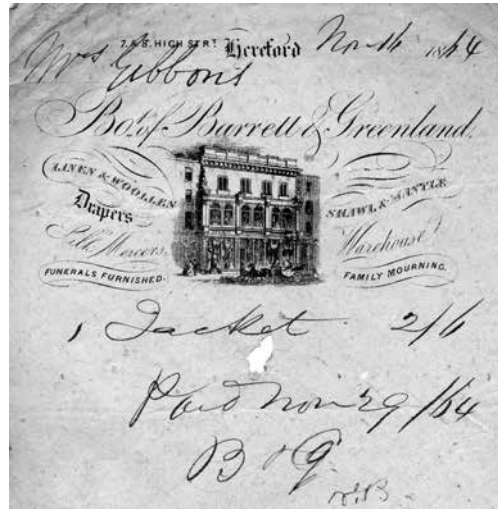 7 & 8. HIGH STRT. Hereford Nov 16 1864
Mrs Gibbons
Bot. of Barrett & Greenland.
LINEN & WOOLLEN
Drapers
Silk Mercers,
FUNERALS FURNISHED.
SHAWL & MANTLE
Warehouse
FAMILY MOURNING.
1 Jacket 2/6
Paid Nov 29/64
B & G